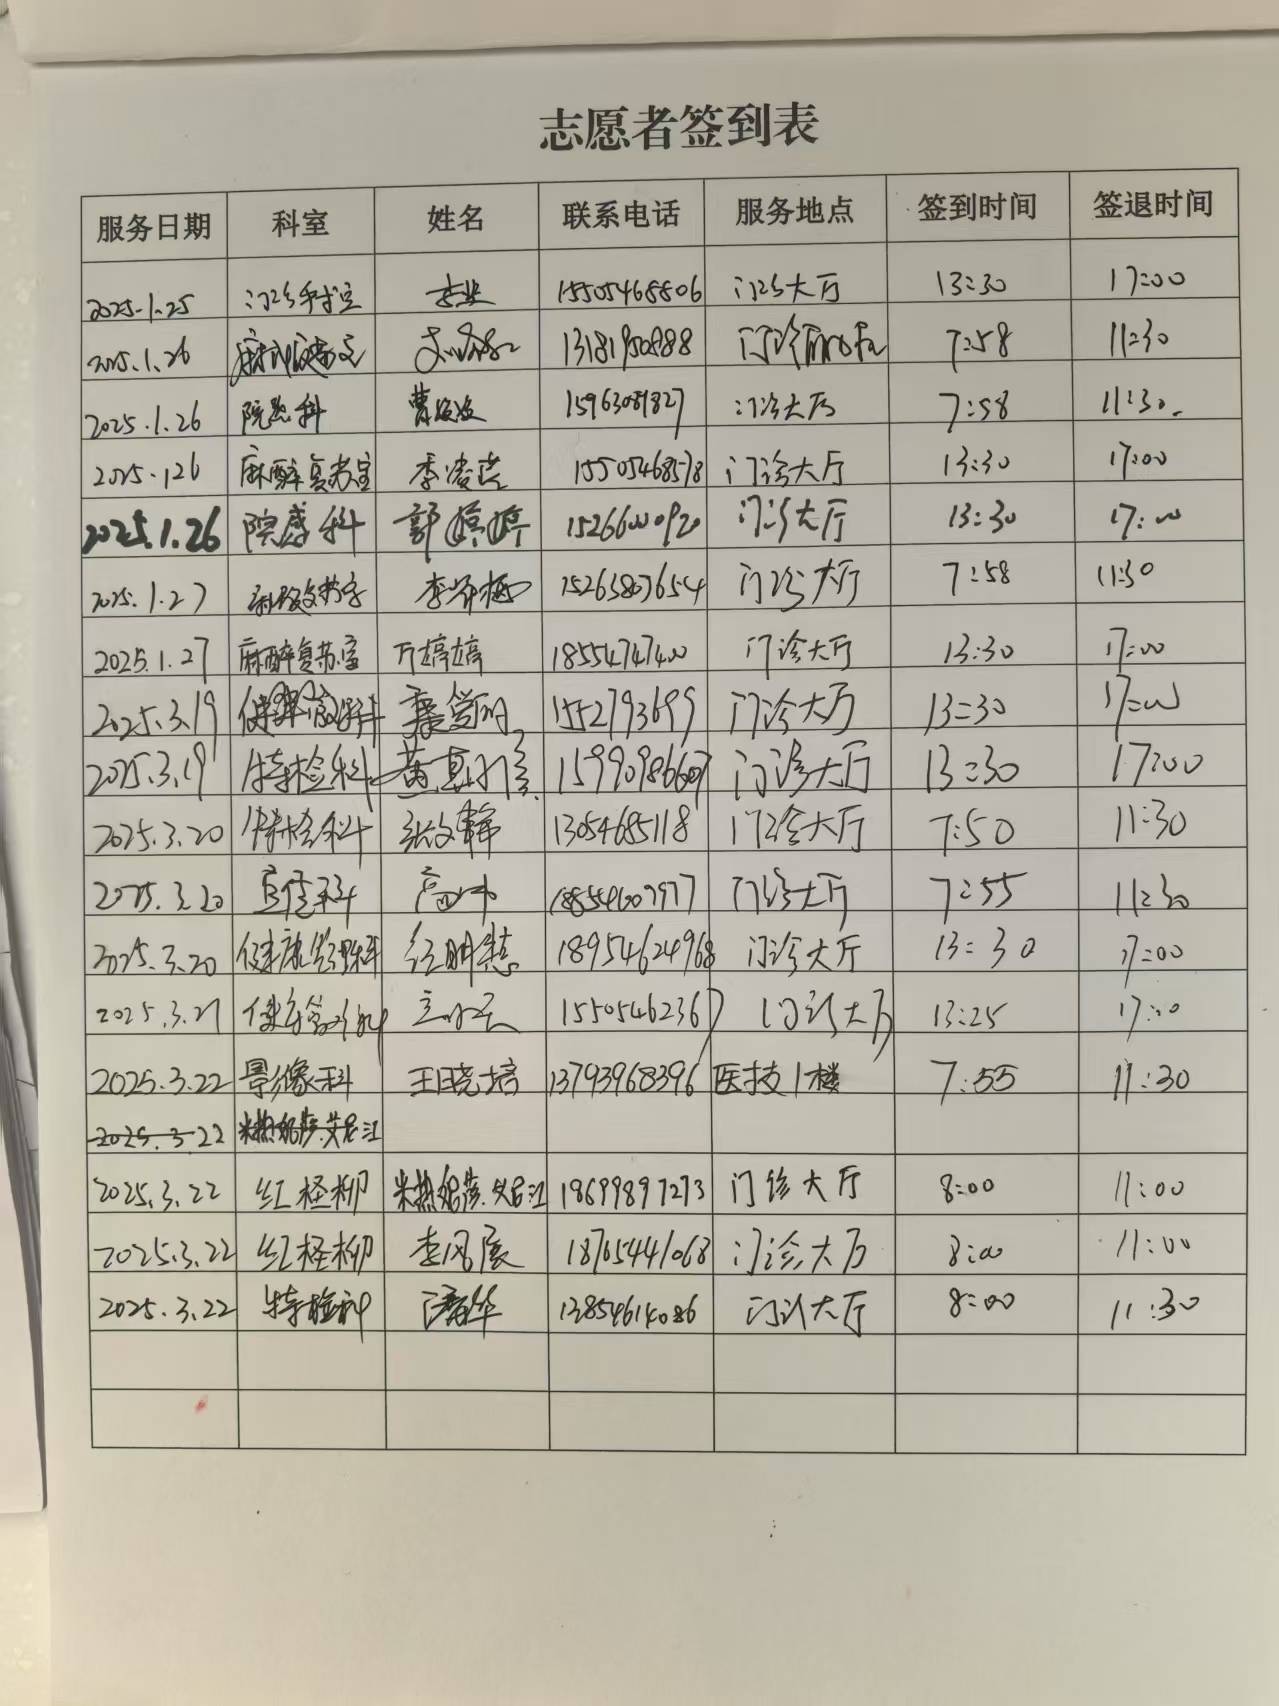 志愿者签到表
服务日期 科室 姓名 联系电话 服务地点 签到时间 签退时间
2025.1.25 门诊手术室 15505468806 门诊大厅 13:30 17:00
2025.1.26 13181950888 7:58 11:30
2025.1.26 院感科 曹 15963081827 门诊大厅 7:58 11:30
2025.126 麻醉复苏室 李凌 15505468578 门诊大厅 13:30 17:00
2025.1.26 院感科 郭婷婷 15266000920 门诊大厅 13:30 17:00
2025.1.27 李 15263807654 门诊大厅 7:58 11:30
2025.1.27 麻醉复苏室 万婷婷 18554747400 门诊大厅 13:30 17:00
2025.3.19 健康管理科 1552793699 门诊大厅 13:30 17:00
2025.3.19 特检科 黄 15990986607 门诊大厅 13:30 17:00
2025.3.20 特检科 张文静 13054685118 门诊大厅 7:50 11:30
2025.3.20 宣传科 高 18554607977 门诊大厅 7:55 11:30
2025.3.20 健康管理科 明慧 18954624968 门诊大厅 13:30 17:00
2025.3.21 健康管理科 15505462367 门诊大厅 13:25 17:00
2025.3.22 影像科 王晓培 13793968396 医技1楼 7:55 11:30
2025.3.22
2025.3.22 红柽柳 18699897273 门诊大厅 8:00 11:00
2025.3.22 红柽柳 李风 18765441068 门诊大厅 8:00 11:00
2025.3.22 特检科 13854614086 门诊大厅 8:00 11:30